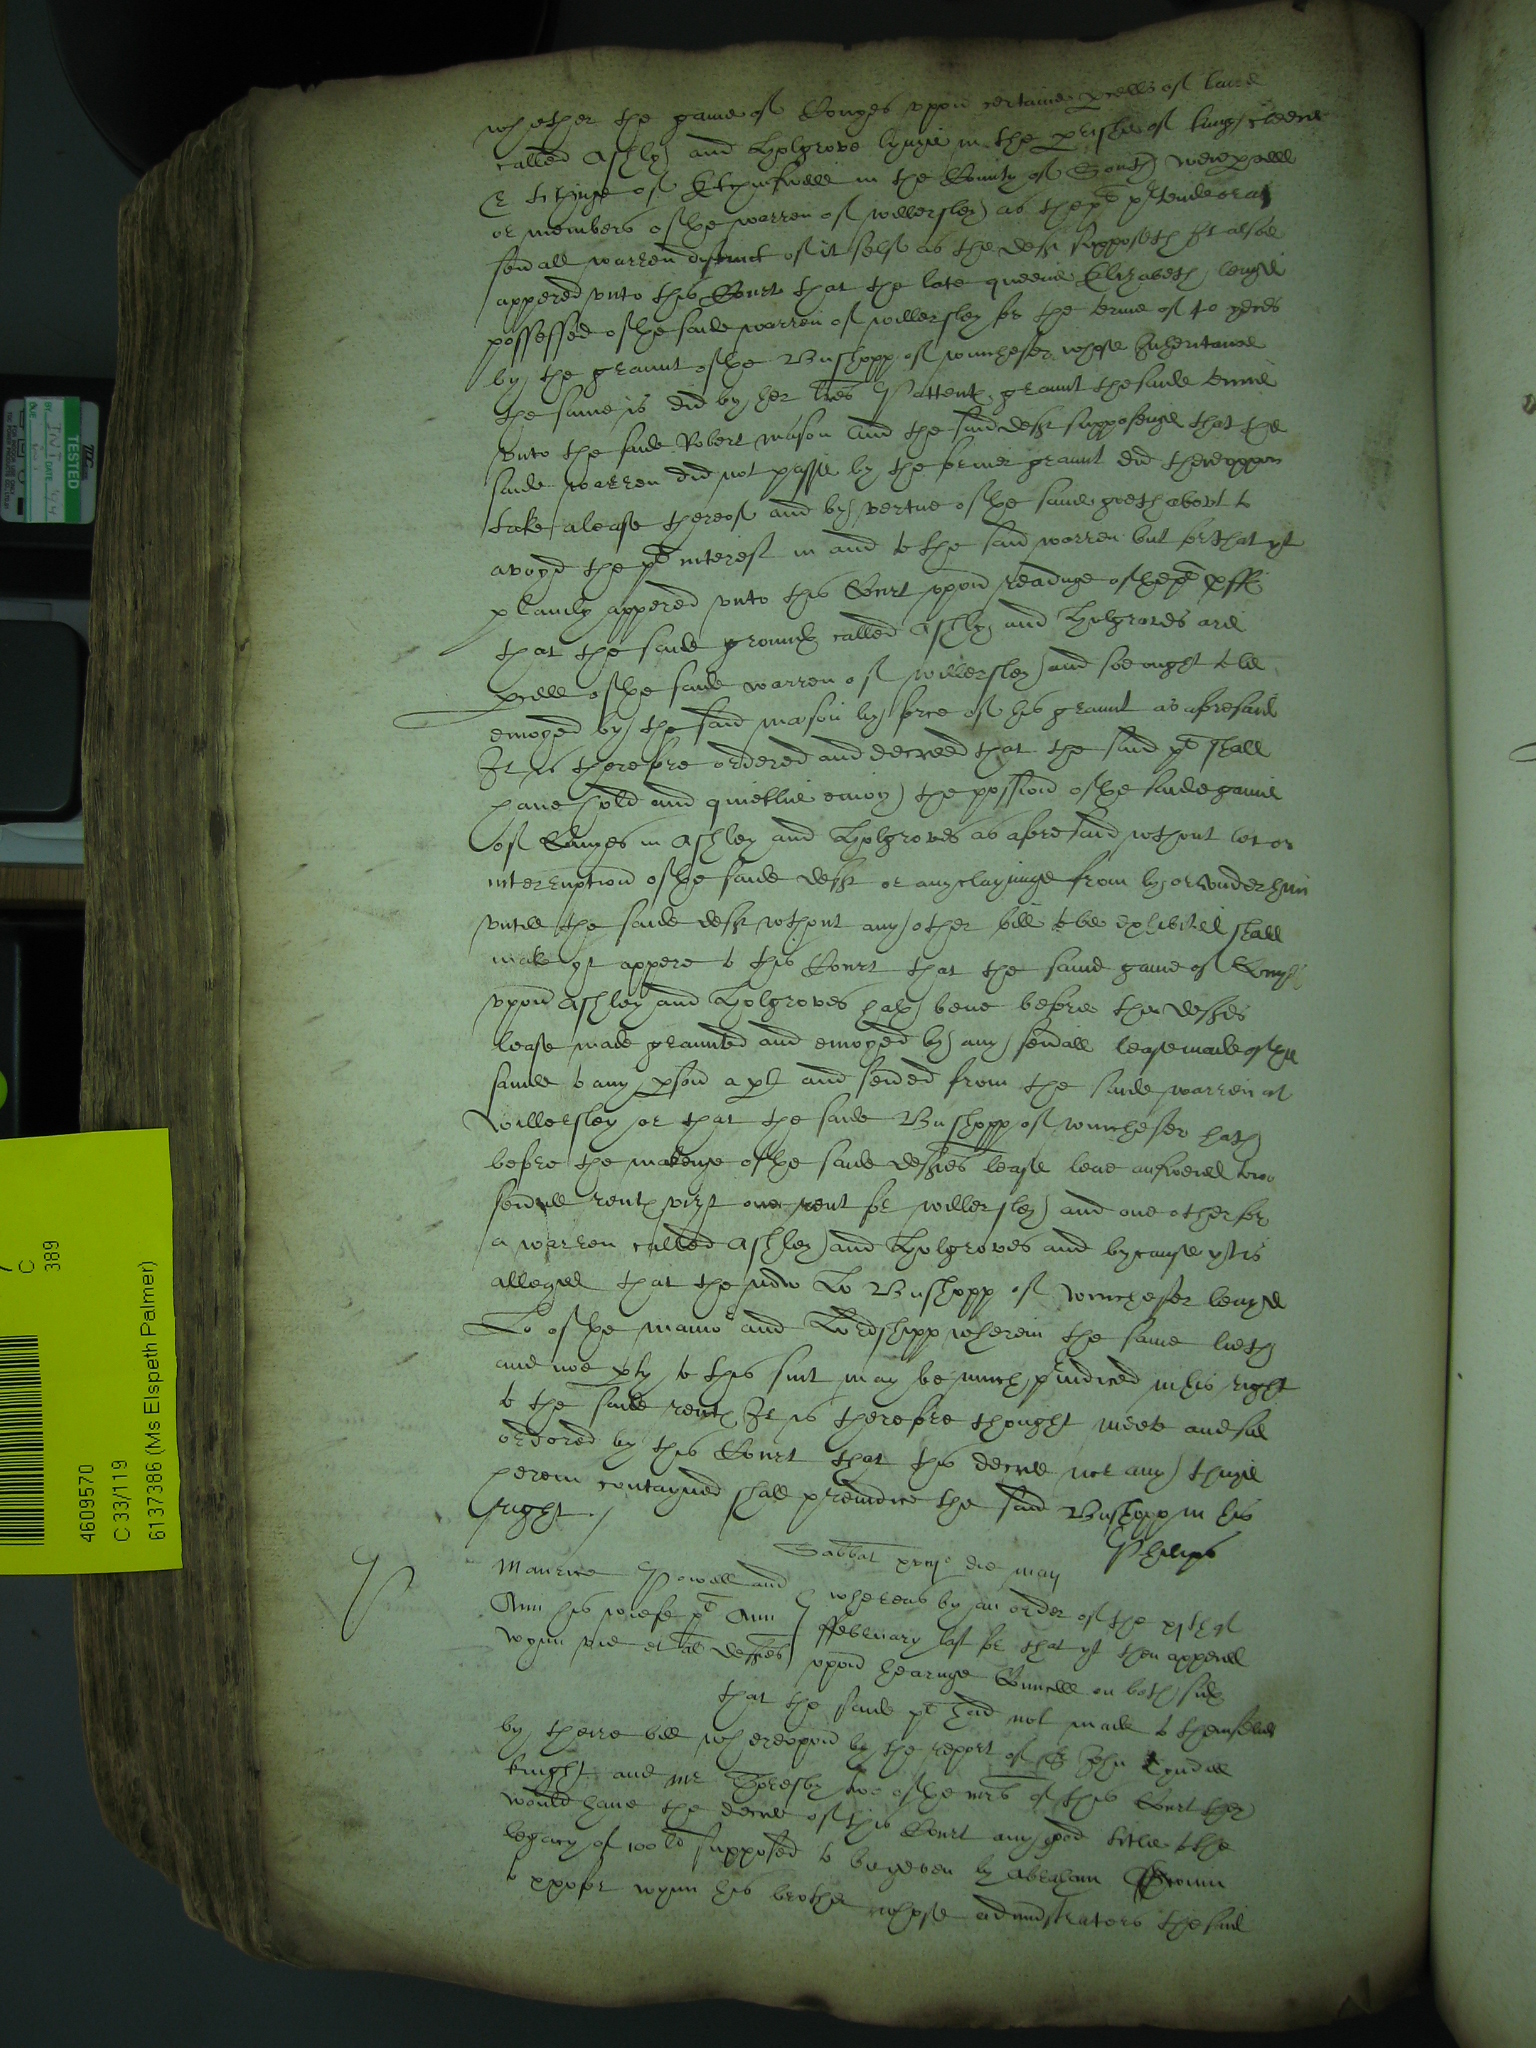 whether the game of Conyes vpon certaine pcells of land
called Ashley and Holgrove lyinge in the prishe of kings cleere
& tithinge of Etchinswell in the County of South were pcell
or members of the warren of willersley as the plt ptendeth or a
seuall warren distinct of it selfe as the deft supposeth It alsoe
appered vnto this Court that the late queene Elizabeth beinge
possessed of the saide warren of willersley for the terme of 40 yeres
by the graunt of the Busshopp of winchester whose Inheritance
the same is did by her lres Pattent graunt the saide terme
vnto the saide Robert Mason And the said deft supposinge that the
saide warren did not passe by the former graunt did therevppon
take a lease thereof and by vertue of the same goeth about to
avoyd the plt interest in and to the said warren but for that yt
plainly appered vnto this Court vpon readinge of the plt
that the saide ground called Ashley and Holgroves are
pcell of the saide warren of willersley and soe ought to be
enioyed by the said Mason by force of his graunt as aforesaid
It is therefore ordered and decreed that the said plt shall
haue hold and quietlie enioy the possession of the saide game
of Conyes in Ashley and Holgroves as aforesaid without let or
interruption of the saide deft or any clayminge from by or vnder him
vntill the saide deft without any other bill to be exhibited shall
make yt appere to this Court that the same game of Conyes
vpon Ashley and Holgroves hath bene before the deftes
lease made graunted and enioyed by any seuall lease made of the
same to any pson a pt and seuered from the saide warren of
Willersley or that the saide Busshopp of winchester hath
before the makinge of the saide deftes lease bene answered two
seuall rents vizt one rent for willersley and one other for
a warren called Ashley and Holgroves and bycause yt is
alleged that the now Lo Busshopp of Winchester beinge
Lo of the mannor and Lordshipp wherein the same lieth
and noe pty to this suit may be much preiudiced in his right
to the saide rents It is therefore thought meete and soe
ordered by this Court that this decree nor any thinge
herein contayned shall preiudice the said Busshopp in his
right
Phelips
Sabbat die may
Maurice Powell and
Ann his wiefe plt Ann
wynn vid et al deftes
whereas by an order of the xjth of
ffebruary last for that yt then appered
vpon hearinge Councell on both sides
that the saide plt had not made to themselves
by theire bill wherevpon by the report of Sr John Tyndall
knight and mr Thoresby two of the mrs of this Court they
would haue the decree of this Court any good title to the
legacy of 100 supposed to be geven by Abraham
to xpofer wynn his brother whose administrators the said